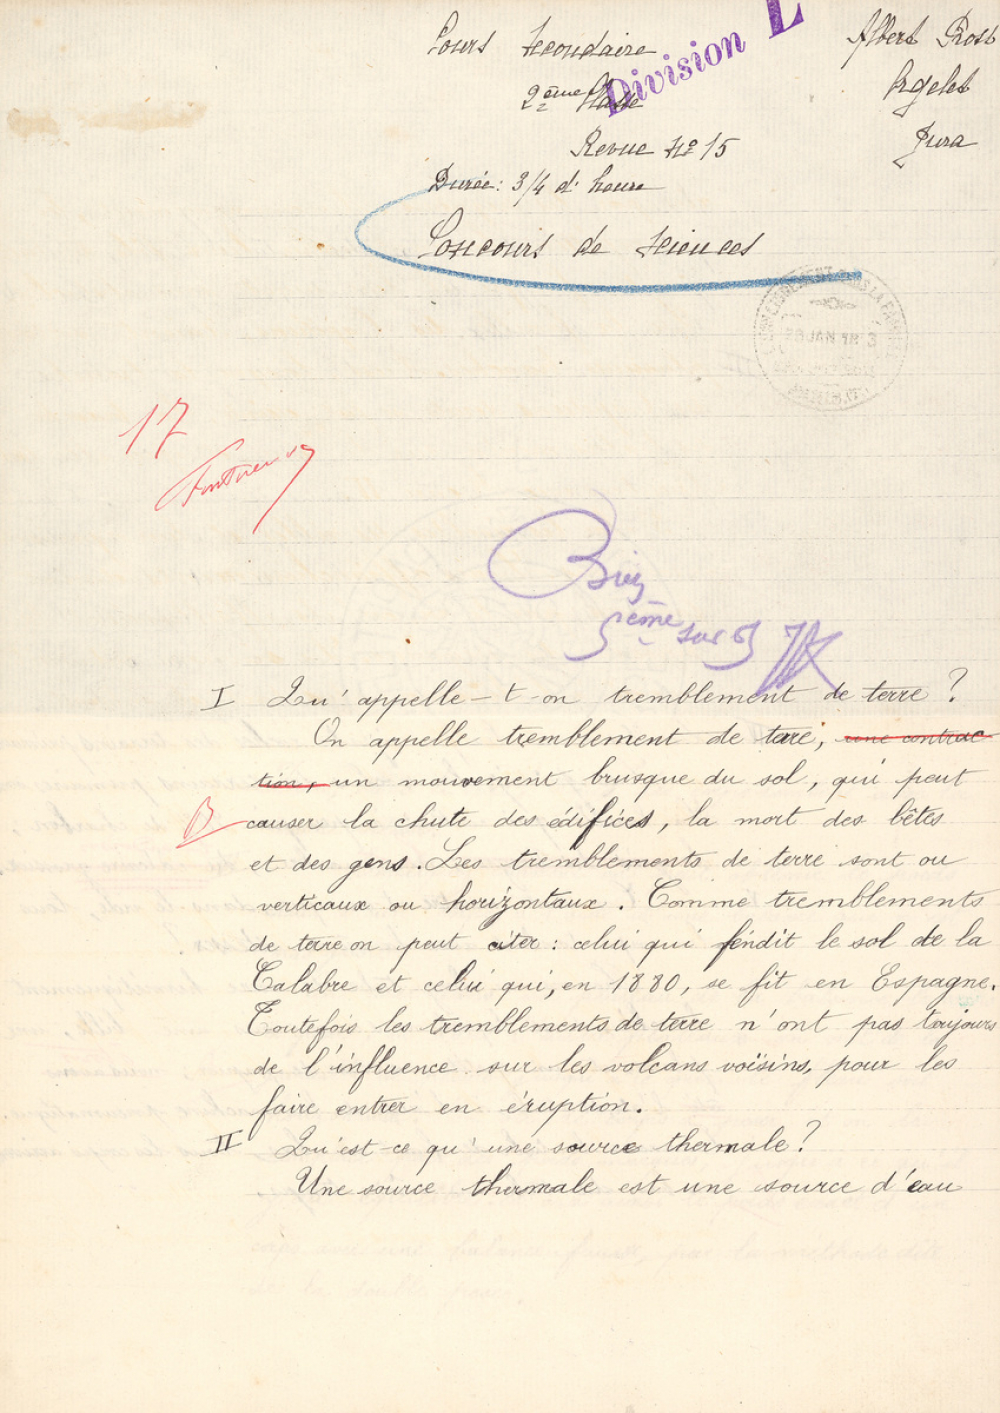 Cours Secondaire
Division L
Albert Rost
2ème Classe
Argelet
Revue No 15
Jura
Durée: 3/4 d'heure
Concours de Sciences
17
Bien
5ème sur 65
I Qu'appelle-t-on tremblement de terre ?
On appelle tremblement de terre, une contrac
tion, un mouvement brusque du sol, qui peut
B causer la chute des édifices, la mort des bêtes
et des gens. Les tremblements de terre sont ou
verticaux ou horizontaux. Comme tremblements
de terre on peut citer : celui qui fendit le sol de la
Calabre et celui qui, en 1880, se fit en Espagne.
Toutefois les tremblements de terre n'ont pas toujours
de l'influence sur les volcans voisins, pour les
faire entrer en éruption.
II Qu'est-ce qu'une source thermale ?
Une source thermale est une source d'eau